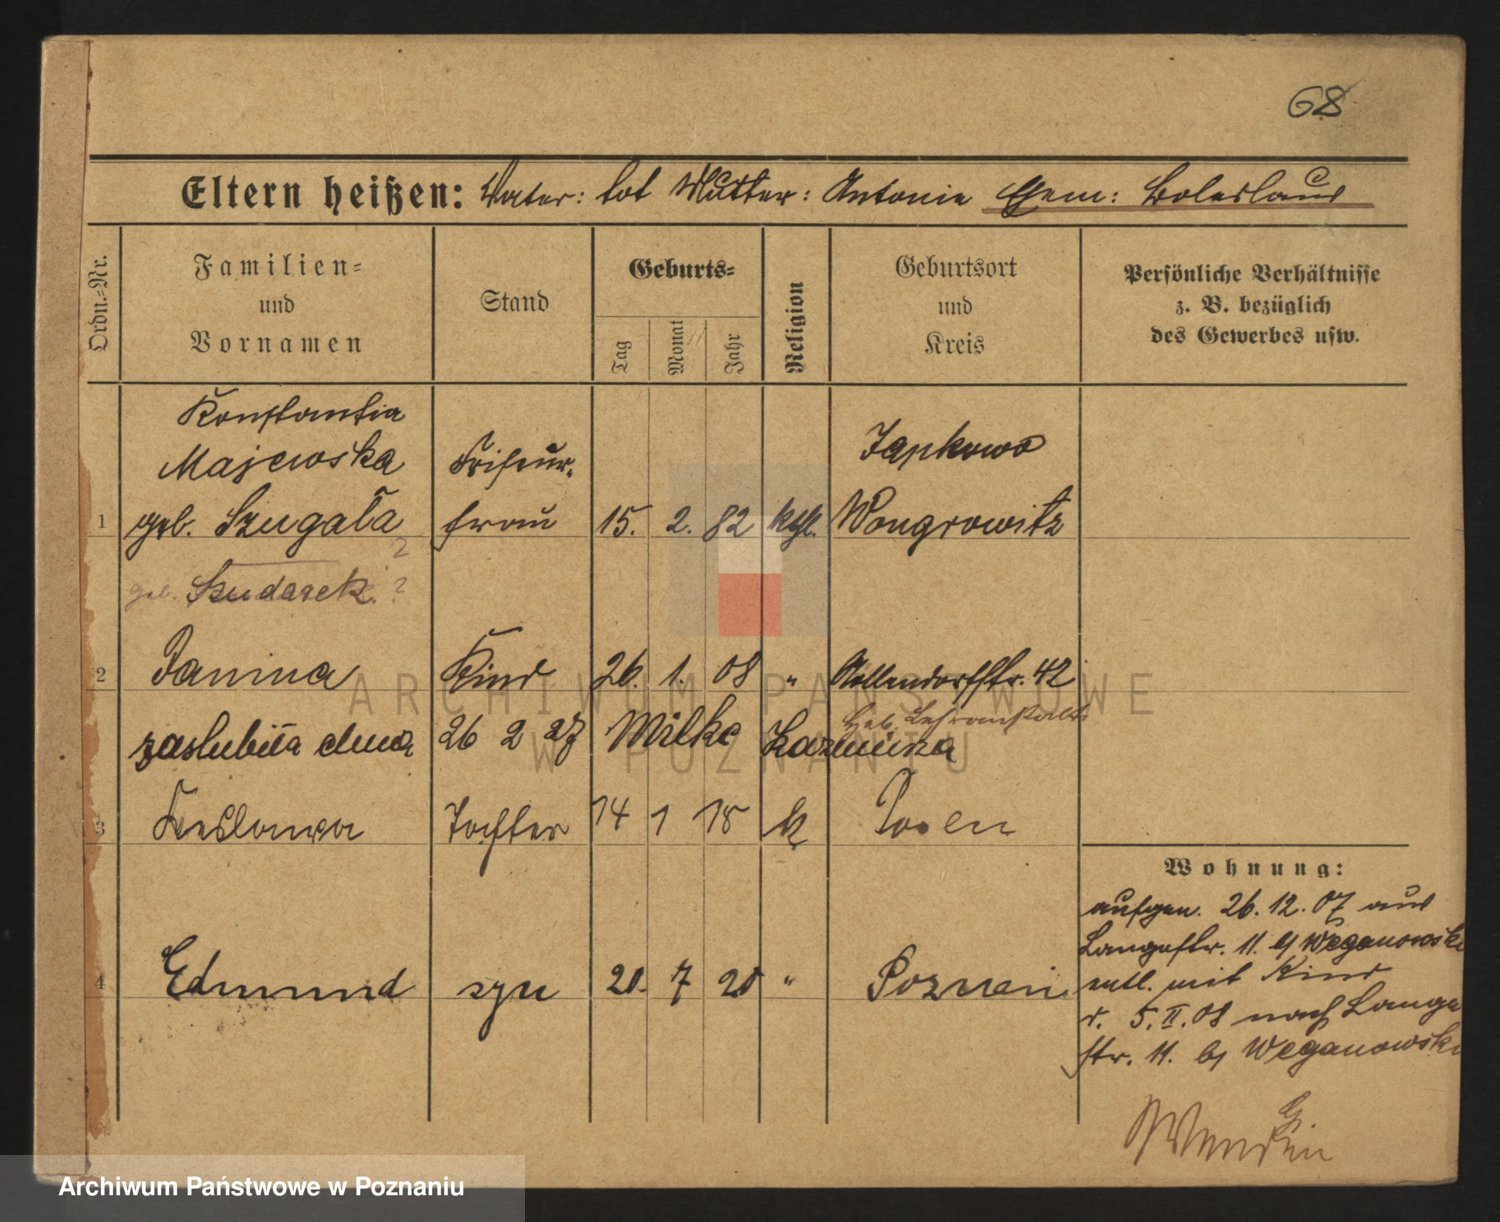 68
Eltern heißen: Vater: tot Mutter: Antonie Ehem: Boleslaus
Ordn.-Nr.
Familien-
und
Vornamen
Stand
Geburts-
Tag
Monat
Jahr
Religion
Geburtsort
und
Kreis
Persönliche Verhältnisse
z. B. bezüglich
des Gewerbes usw.
Konstantia
Majewska
1 geb. Szugała
Friseur-
frau
15. 2. 82 kath.
Japkowo
Wongrowitz
geb. Szudarek ?
2 Janina Kind 26. 1. 08 " Nollendorfstr. 42
Heb. Lehranstalt
zaslubiła dnia 26 2 27 Milke Kazimierza
3 Wesława Tochter 14 1 18 k Posen
4 Edmund syn 20. 7 20 " Poznań
Wohnung:
aufgen. 26. 12. 07 aus
Langestr. 11. bj Weganowski
mtl. mit Kind
v. 5. II. 08 nach Lange
str. 11. bj Weganowski
ARCHIWUM PAŃSTWOWE
W POZNANIU
Archiwum Państwowe w Poznaniu